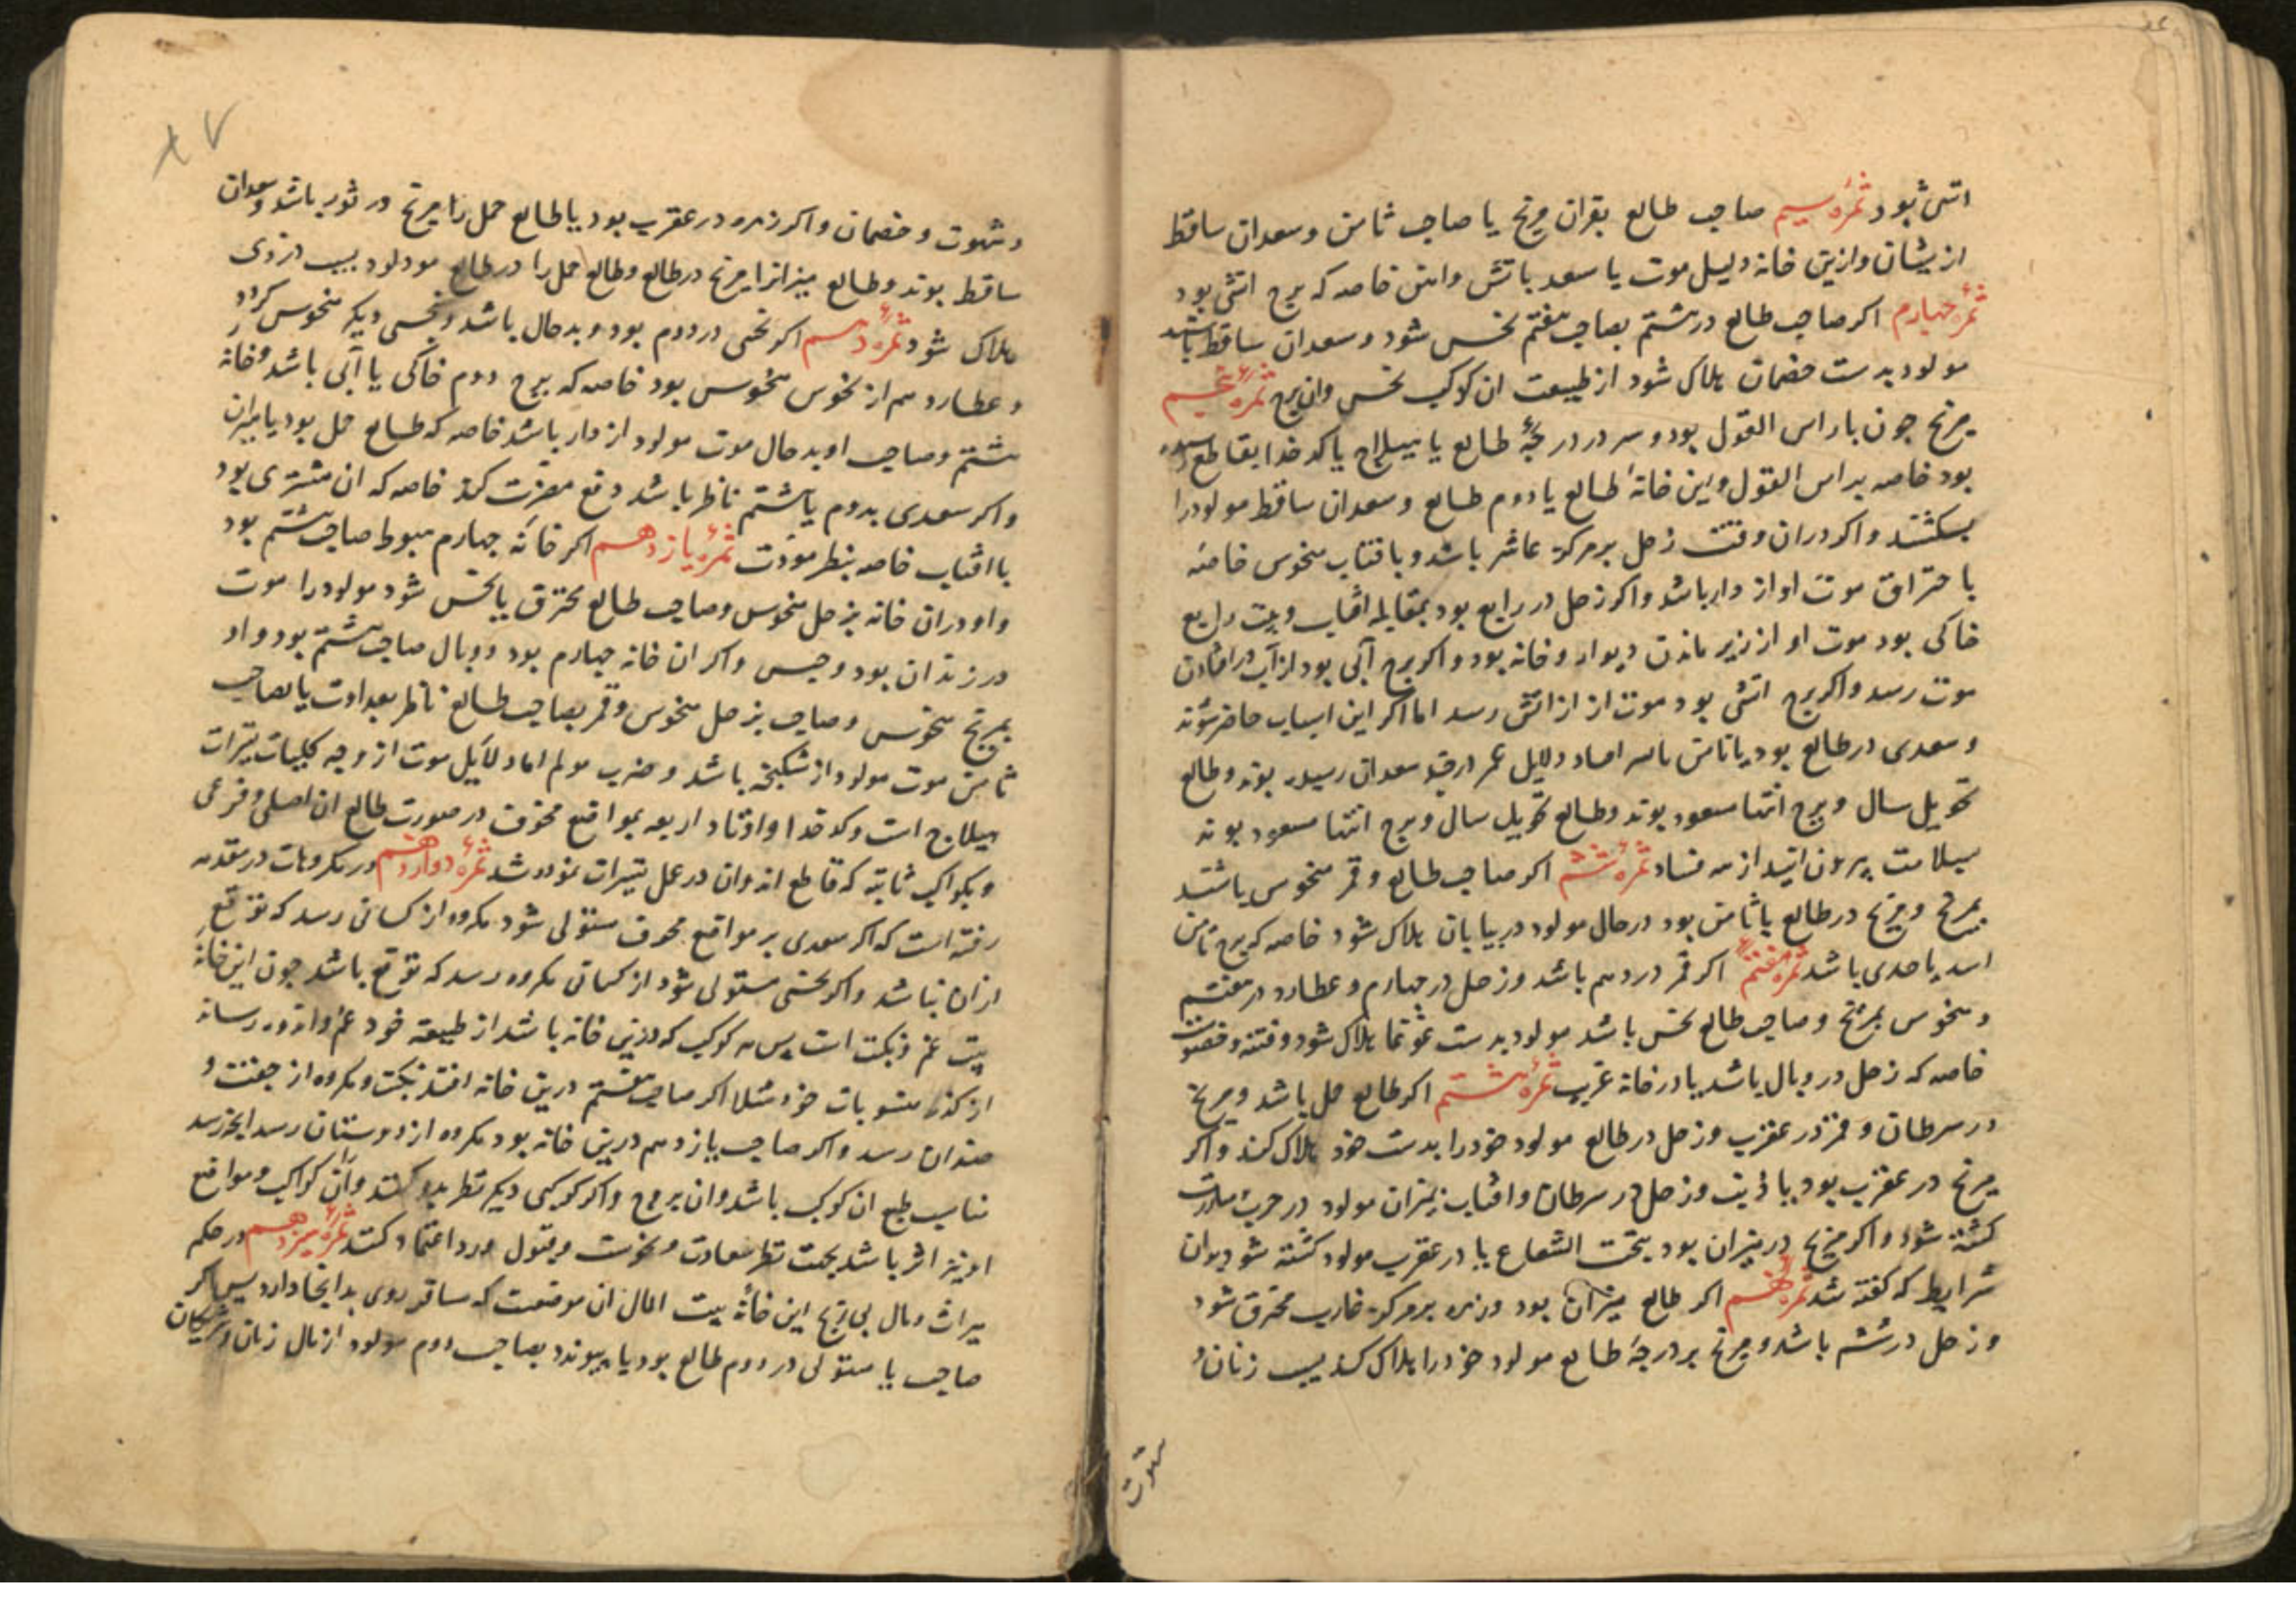 اتشی بود ثمرهٔ سیم صاحب طالع بقران مریخ یا صاحب ثامن و سعدان ساقط
ازیشان وازین خانه دلیل موت یا سعد باتش واهن خاصه که برج اتشی بود
ثمرهٔ چهارم اکر صاحب طالع در هشتم بصاحب هفتم نحس شود و سعدان ساقط باشند
مولود بدست خصمان هلاک شود از طبیعت ان کوکب نحس وان برج ثمرهٔ پنجم
مریخ جون باراس الغول بود و سر در درجهٔ طالع یا هیلاج یا کدخدا بقاطع
بود خاصه براس الغول واین خانهٔ طالع یا دوم طالع و سعدان ساقط مولودرا
بکشند و اکر دران وقت زحل بر مرکز عاشر باشد و بافتاب منحوس خاصه
باحتراق موت او از دار باشد و اکر زحل در رابع بود بمقابله افتاب وبیت رابع
خاکی بود موت او از زیر ماندن دیوار و خانه بود و اکر برج آبی بود از آب در افتادن
موت رسد و اکر برج اتشی بود موت از ازاتش رسد اما اکر این اسباب حاضر شوند
و سعدی در طالع بود یا ثامن دلایل عمر در قید سعدان رسیده بوند و طالع
تحویل سال و برج انتها مسعود بوند و طالع تحویل سال و برج انتها مسعود بوند
بسلامت بیرون آیند از مه فساد ثمرهٔ ششم اکر صاحب طالع و قمر منحوس باشند
بمریخ و مریخ در طالع یا ثامن بود در حال مولود در بیابان هلاک شود خاصه که برج ثامن
اسد یا جدی باشد ثمرهٔ هفتم اکر قمر در دهم باشد و زحل در چهارم و عطارد در هفتم
و منحوس بمریخ و صاحب طالع نحس باشد مولود بدست غوغا هلاک شود و فتنه و خصومت
خاصه که زحل در وبال باشد یا در خانه غریب ثمرهٔ هشتم اکر طالع حمل باشد و مریخ
در سرطان و قمر در عقرب و زحل در طالع مولود خودرا بدست خود هلاک کند و اکر
مریخ در عقرب بود یا و زحل در سرطان و افتاب بمیزان مولود در حرب
کشته شود و اکر مریخ در میزان بود تحت الشعاع یا در عقرب مولود کشته شود بران
شرایط که کفته شد ثمرهٔ نهم اکر طالع میزان بود و زهره بر مرکز غارب محترق شود
و زحل در ششم باشد و مریخ بر درجهٔ طالع مولود خودرا هلاک کند بسبب زنان و
شهوت
و شهوت و خصمان و اکر زهره در عقرب بود یا طالع حمل را مریخ در ثور باشد و سعدان
ساقط بوند و طالع میزانرا مریخ در طالع و طالع حمل را در طالع مولود بسبب دزدی
هلاک شود ثمرهٔ دهم اکر نحسی در دوم بود و بدحال باشد و بنحسی دیکر منحوس کردد
و عطارد هم از نحوس منحوس بود خاصه که برج دوم خاکی یا آبی باشد و خانه
هشتم و صاحب او بدحال موت مولود از دار باشد خاصه که طالع حمل بود یا میزان
و اکر سعدی بدوم یا هشتم ناظر باشد دفع مضرت کند خاصه که ان مشتری بود
با افتاب خاصه بنظر مودت ثمرهٔ یازدهم اکر خانهٔ چهارم هبوط صاحب هشتم بود
و او دران خانه بزحل منحوس و صاحب طالع محترق یا نحس شود مولودرا موت
در زندان بود و حبس و اکر ان خانه چهارم بود و وبال صاحب هشتم بود و او
بمریخ منحوس و صاحب بزحل منحوس و قمر بصاحب طالع ناظر بعداوت یا بصاحب
ثامن موت مولود از شکنجه باشد و ضرب مولم اما دلایل موت از وجه کلیات تسیرات
هیلاج است و کدخدا و اوتاد اربعه بمواقع مخوف در صورت طالع ان اصلی و فرعی
و بکواکب ثابته که قاطع اند وان در عمل تسیرات نموده شد ثمرهٔ دوازدهم در مکروهات در مقدمه
رفته است که اکر سعدی بر مواقع مخوف مستولی شود مکروه از کسانی رسد که توقع
ازان نباشد و اکر نحسی مستولی شود از کسانی مکروه رسد که توقع باشد جون این خانه
بیت غم و نکبت است پس هر کوکب که درین خانه باشد از طبیعه خود غم و اندوه رساند
از کذا منسوبات خود مثلا اکر صاحب هفتم درین خانه افتد نکبت و مکروه از جفت و
ضدان رسد و اکر صاحب یازدهم درین خانه بود مکروه از دوستان رسد انچه رسد
مناسب طبع ان کوکب باشد وان بروج و اکر کوکبی دیکر نظر بدو کند وان کواکب و مواقع
او نیز اثر باشد بجهت نظر سعادت و نحوست و قبول ورد اعتماد کند ثمرهٔ سیزدهم در حکم
میراث و مال بی رنج این خانهٔ بیت المال ان موضعست که مسافر روی بدانجا دارد پس اکر
صاحب یا مستولی در دوم طالع بود یا پیوندد بصاحب دوم مولود از مال زنان و شریکان